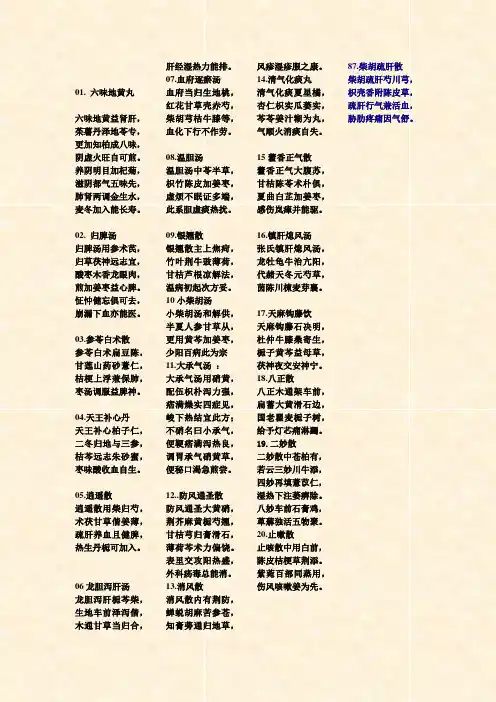 01. 六味地黄丸
六味地黄益肾肝，
茱薯丹泽地苓专，
更加知柏成八味，
阴虚火旺自可煎。
养阴明目加杞菊，
滋阴都气五味先，
肺肾两调金生水，
麦冬加入能长寿。
02. 归脾汤
归脾汤用参术芪，
归草茯神远志宜，
酸枣木香龙眼肉，
煎加姜枣益心脾。
怔忡健忘俱可去，
崩漏下血亦能医。
03.参苓白术散
参苓白术扁豆陈，
甘莲山药砂薏仁，
桔梗上浮兼保肺，
枣汤调服益脾神。
04.天王补心丹
天王补心柏子仁，
二冬归地与三参，
桔苓远志朱砂蜜，
枣味酸收血自生。
05.逍遥散
逍遥散用柴归芍，
术茯甘草偕姜薄，
疏肝养血且健脾，
热生丹栀可加入。
06 龙胆泻肝汤
龙胆泻肝栀芩柴，
生地车前泽泻偕，
木通甘草当归合，
肝经湿热力能排。
07.血府逐瘀汤
血府当归生地桃，
红花甘草壳赤芍，
柴胡芎桔牛膝等，
血化下行不作劳。
08.温胆汤
温胆汤中苓半草，
枳竹陈皮加姜枣，
虚烦不眠证多端，
此系胆虚痰热扰。
09.银翘散
银翘散主上焦疴，
竹叶荆牛豉薄荷，
甘桔芦根凉解法，
温病初起次方妥。
10 小柴胡汤
小柴胡汤和解供，
半夏人参甘草从，
更用黄芩加姜枣，
少阳百病此为宗
11.大承气汤 ：
大承气汤用硝黄，
配伍枳朴泻力强，
痞满燥实四症见，
峻下热结宜此方；
不硝名曰小承气，
便鞕痞满泻热良，
调胃承气硝黄草，
便秘口渴急煎尝。
12..防风通圣散
防风通圣大黄硝，
荆芥麻黄栀芍翘，
甘桔芎归膏滑石，
薄荷芩术力偏饶。
表里交攻阳热盛，
外科疡毒总能消。
13.消风散
消风散内有荆防，
蝉蜕胡麻苦参苍，
知膏蒡通归地草，
风疹湿疹服之康。
14.清气化痰丸
清气化痰夏星橘，
杏仁枳实瓜蒌实，
芩苓姜汁糊为丸，
气顺火消痰自失。
15 藿香正气散
藿香正气大腹苏，
甘桔陈苓术朴俱，
夏曲白芷加姜枣，
感伤岚瘴并能驱。
16.镇肝熄风汤
张氏镇肝熄风汤，
龙牡龟牛治亢阳，
代赭天冬元芍草，
茵陈川楝麦芽襄。
17.天麻钩藤饮
天麻钩藤石决明，
杜仲牛膝桑寄生，
栀子黄芩益母草，
茯神夜交安神宁。
18.八正散
八正木通架车前，
扁蓄大黄滑石边，
国老瞿麦栀子树，
给予灯芯痛淋蠲。
19.二妙散
二妙散中苍柏有，
若云三妙川牛添，
四妙再填薏苡仁，
湿热下注萎痹除。
八妙车前石膏鸡，
萆薢独活五物聚。
20.止嗽散
止咳散中用白前，
陈皮桔梗草荆添。
紫菀百部同蒸用，
伤风咳嗽姜为先。
87.柴胡疏肝散
柴胡疏肝芍川芎，
枳壳香附陈皮草，
疏肝行气兼活血，
胁肋疼痛因气舒。